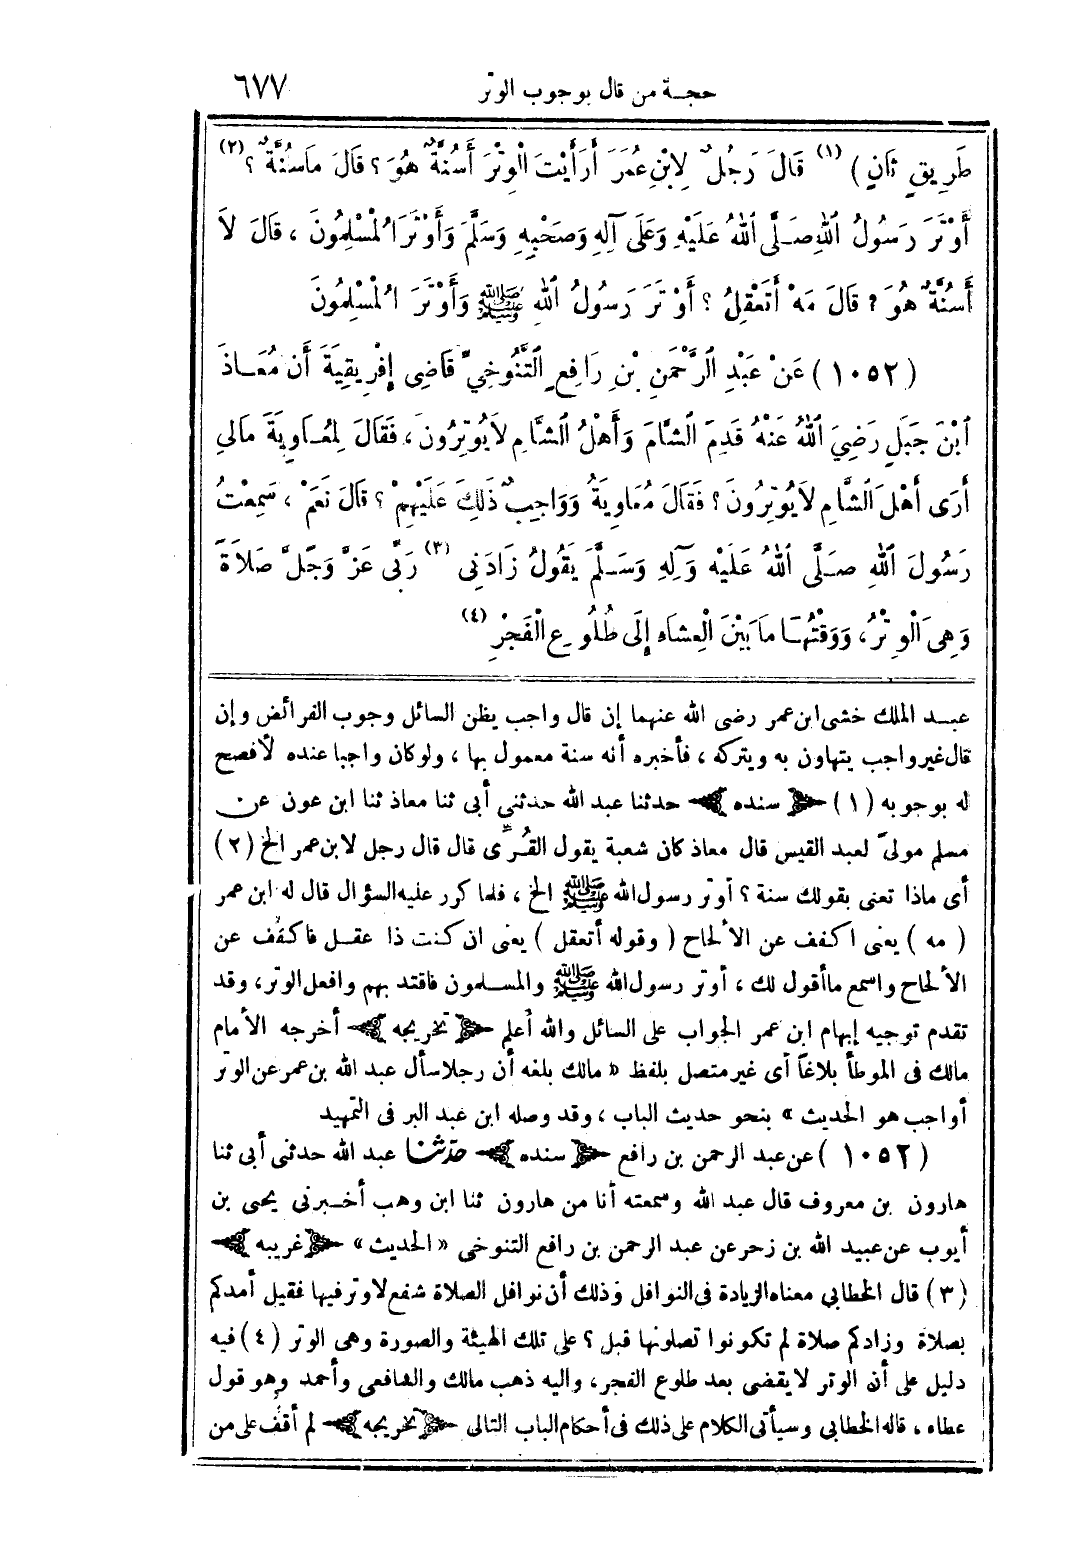 حجة من قال بوجوب الوتر ٦٧٧
طَرِيقٍ ثَانٍ ) (١) قَالَ رَجُلٌ لِابْنِ عُمَرَ أَرَأَيْتَ الْوِتْرَ أَسُنَّةٌ هُوَ؟ قَالَ مَاسُنَّةٌ ؟ (٢)
أَوْتَرَ رَسُولُ اللهِ صَلَّى اللهُ عَلَيْهِ وَعَلَى آلِهِ وَصَحْبِهِ وَسَلَّمَ وَأَوْتَرَ الْمُسْلِمُونَ ، قَالَ لَا
أَسُنَّةٌ هُوَ؟ قَالَ مَهْ أَتَعْقِلُ ؟ أَوْتَرَ رَسُولُ اللهِ ﷺ وَأَوْتَرَ الْمُسْلِمُونَ
(١٠٥٢) عَنْ عَبْدِ الرَّحْمَنِ بْنِ رَافِعٍ التَّنُوخِيِّ قَاضِى إِفْرِيقِيَةَ أَنَّ مُعَاذَ
ابْنَ جَبَلٍ رَضِيَ اللهُ عَنْهُ قَدِمَ الشَّامَ وَأَهْلُ الشَّامِ لَا يُوتِرُونَ، فَقَالَ لِمُعَاوِيَةَ مَالِى
أَرَى أَهْلَ الشَّامِ لَا يُوتِرُونَ؟ فَقَالَ مُعَاوِيَةُ وَوَاجِبٌ ذَلِكَ عَلَيْهِمْ ؟ قَالَ نَعَمْ ، سَمِعْتُ
رَسُولَ اللهِ صَلَّى اللهُ عَلَيْهِ وَآلِهِ وَسَلَّمَ يَقُولُ زَادَنِى (٣) رَبِّى عَزَّ وَجَلَّ صَلَاةً
وَهِىَ الْوِتْرُ، وَوَقْتُهَا مَا بَيْنَ الْعِشَاءِ إِلَى طُلُوعِ الْفَجْرِ (٤)
عبد الملك خشى ابن عمر رضى الله عنهما إن قال واجب يظن السائل وجوب الفرائض وإن
قال غير واجب يتهاون به ويتركه ، فأخبره أنه سنة معمول بها ، ولو كان واجبا عنده لأفصح
له بوجوبه (١) ﴿ سنده ﴾ حدثنا عبد الله حدثنى أبى ثنا معاذ ثنا ابن عون عن
مسلم مولىً لعبد القيس قال معاذ كان شعبة يقول القُرِّى قال قال رجل لابن عمر الخ (٢)
أى ماذا تعنى بقولك سنة ؟ أوتر رسول الله ﷺ الخ ، فلما كرر عليه السؤال قال له ابن عمر
( مه ) يعنى اكفف عن الألحاح ( وقوله أتعقل ) يعنى ان كنت ذا عقل فاكفف عن
الألحاح واسمع ما أقول لك ، أوتر رسول الله ﷺ والمسلمون فاقتد بهم وافعل الوتر، وقد
تقدم توجيه إبهام ابن عمر الجواب على السائل والله أعلم ﴿ تخريجه ﴾ أخرجه الأمام
مالك فى الموطأ بلاغاً أى غير متصل بلفظ « مالك بلغه أن رجلا سأل عبد الله بن عمر عن الوتر
أواجب هو الحديث » بنحو حديث الباب ، وقد وصله ابن عبد البر فى التمهيد
(١٠٥٢) عن عبد الرحمن بن رافع ﴿ سنده ﴾ حدثنا عبد الله حدثنى أبى ثنا
هارون بن معروف قال عبد الله وسمعته أنا من هارون ثنا ابن وهب أخبرنى يحيى بن
أيوب عن عبيد الله بن زحر عن عبد الرحمن بن رافع التنوخى « الحديث » ﴿ غريبه ﴾
(٣) قال الخطابى معناه الزيادة فى النوافل وذلك أن نوافل الصلاة شفع لا وتر فيها فقيل أمدكم
بصلاة وزادكم صلاة لم تكونوا تصلونها قبل ؟ على تلك الهيئة والصورة وهى الوتر (٤) فيه
دليل على أن الوتر لا يقضى بعد طلوع الفجر، واليه ذهب مالك والشافعى وأحمد وهو قول
عطاء ، قاله الخطابى وسيأتى الكلام على ذلك فى أحكام الباب التالى ﴿ تخريجه ﴾ لم أقف على من